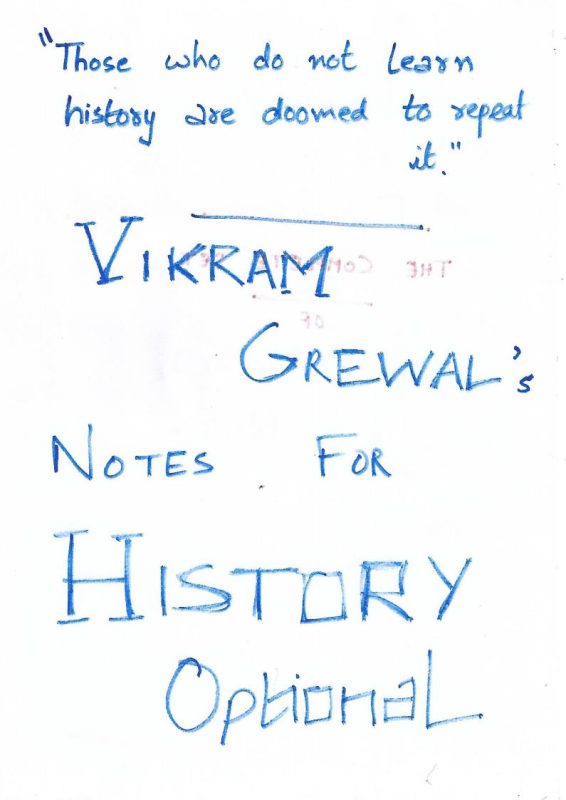 "Those who do not learn
history are doomed to repeat
it."
VIKRAM
GREWAL's
NOTES FOR
HISTORY
Optional